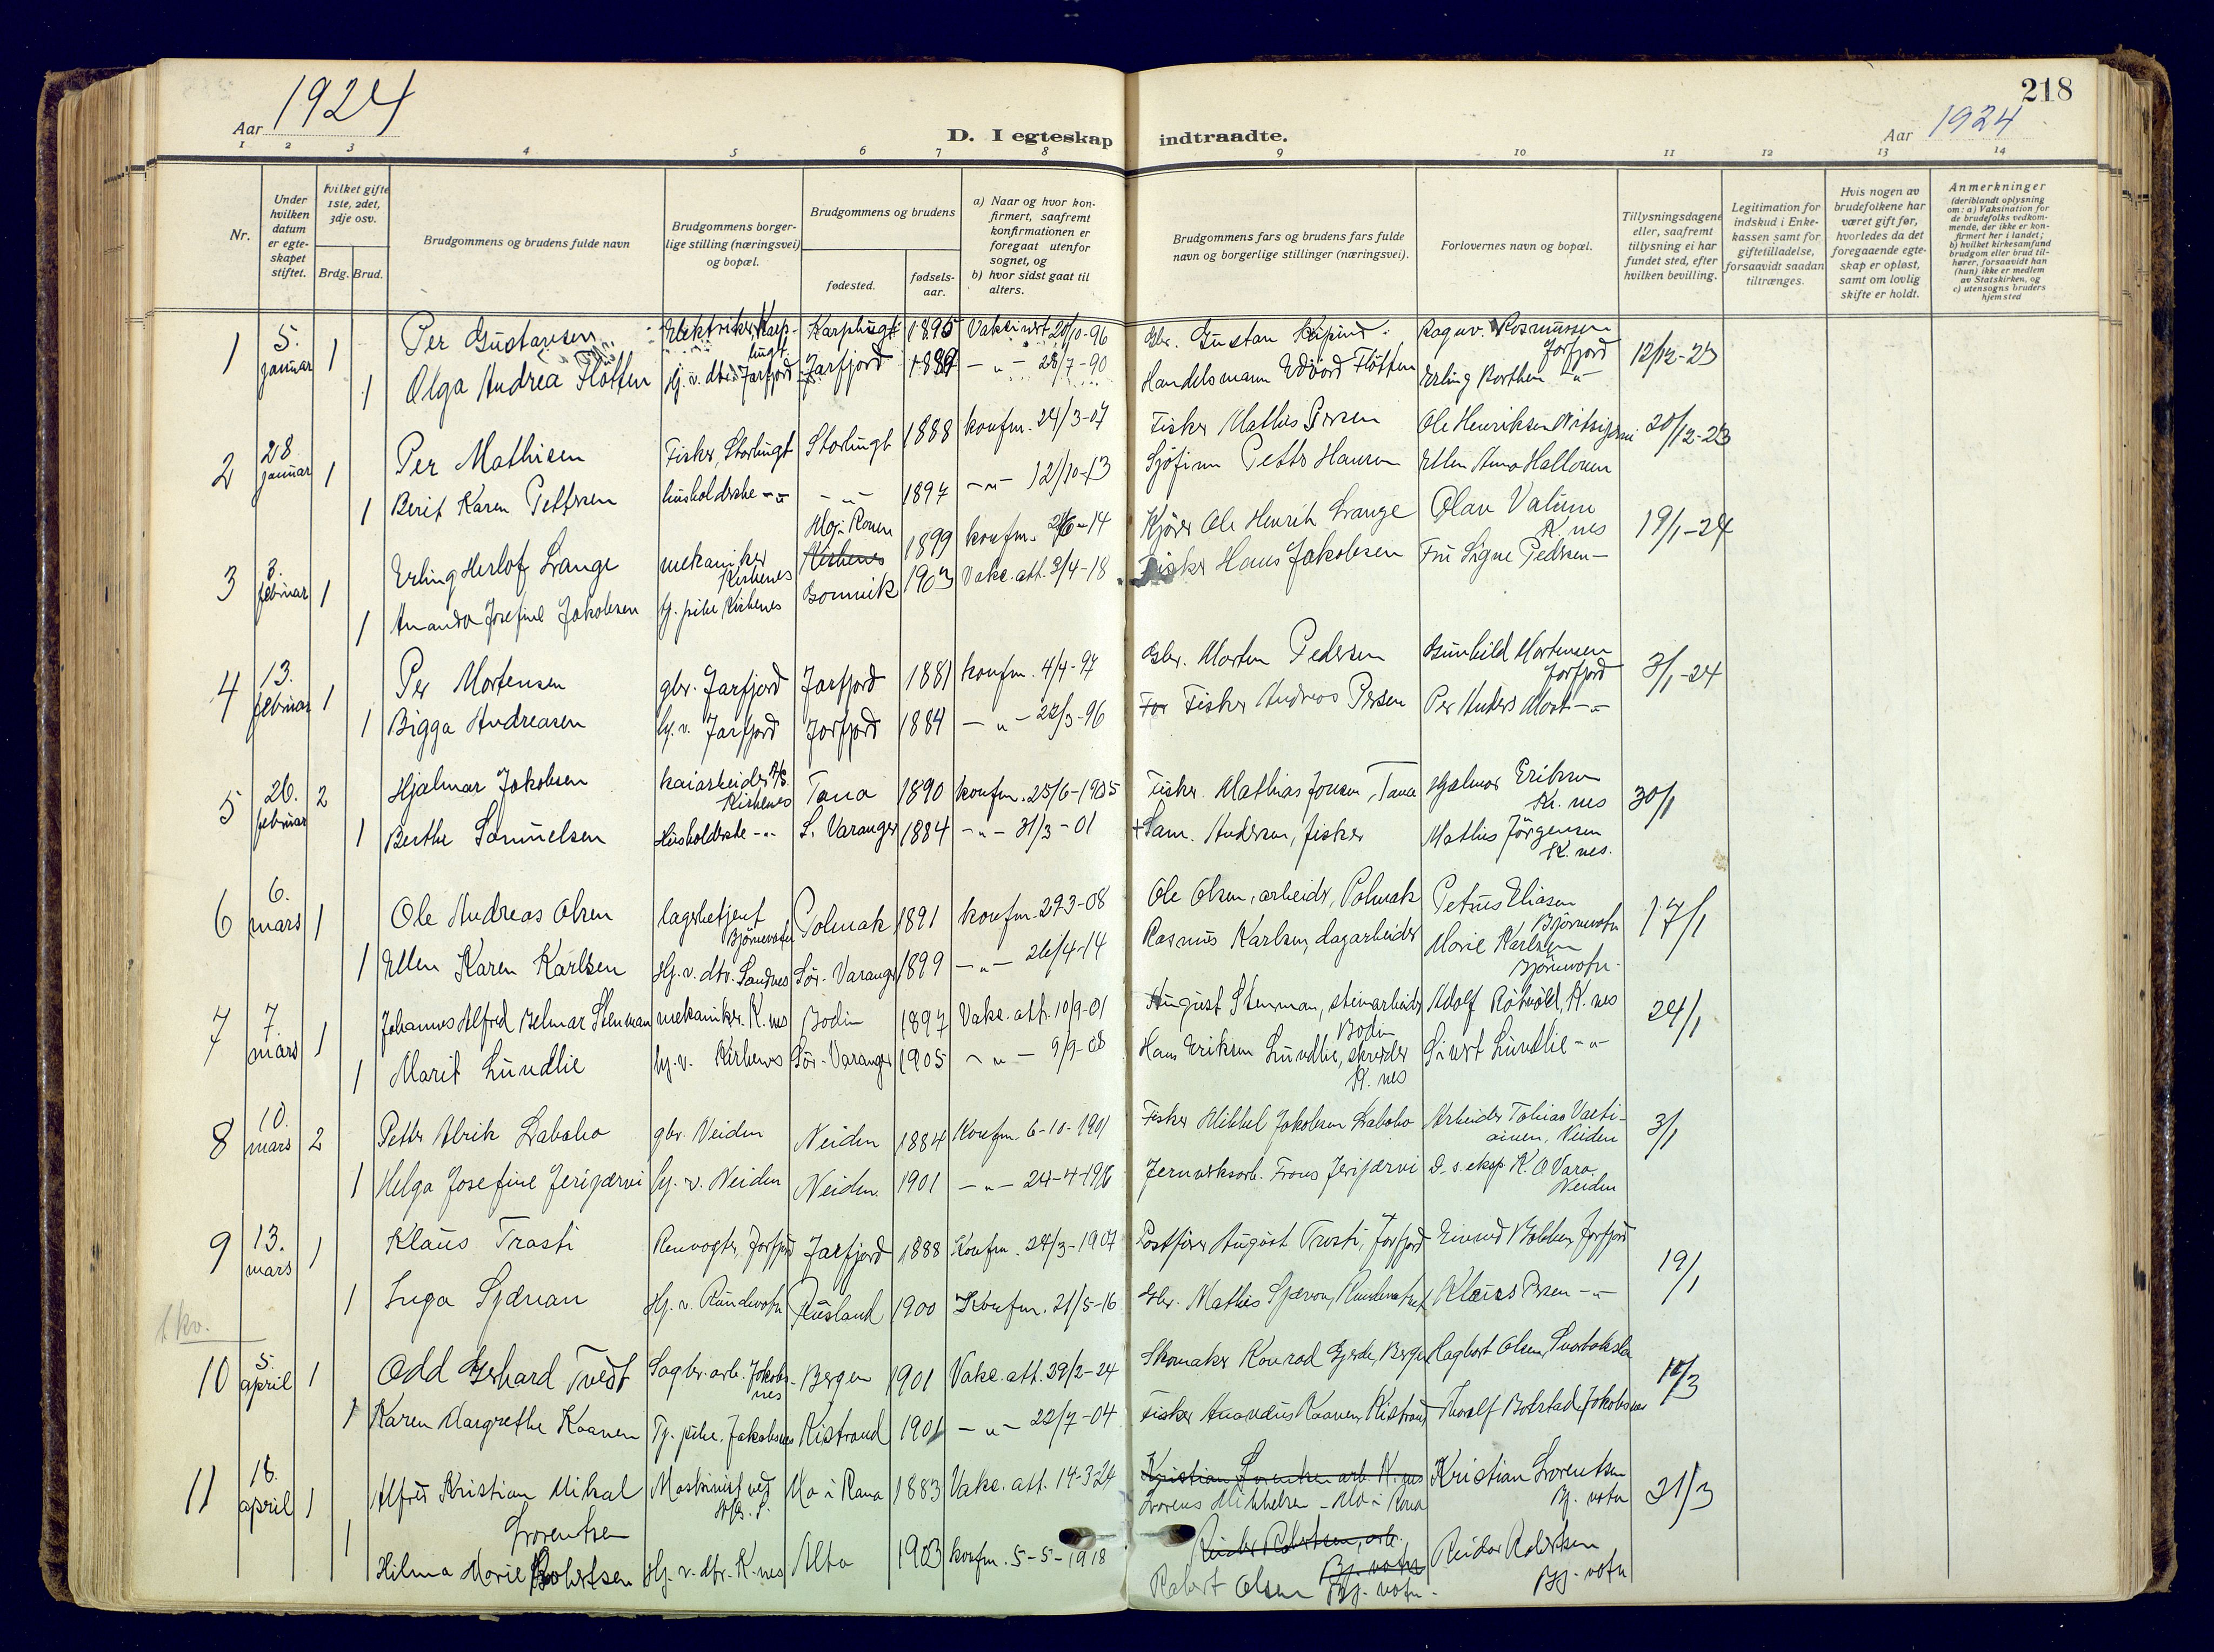 1924
218
Aar
D. I egteskap indtraadte.
Aar 1924
1 2 3 4 5 6 7 8 9 10 11 12 13 14
Nr.
Under hvilken datum er egteskapet stiftet.
Hvilket gifte 1ste, 2det, 3dje osv.
Brdg. Brud.
Brudgommens og brudens fulde navn
Brudgommens borgerlige stilling (næringsvei) og bopæl.
Brudgommens og brudens
fødested.
fødselsaar.
a) Naar og hvor konfirmert, saafremt konfirmationen er foregaat utenfor sognet, og
b) hvor sidst gaat til alters.
Brudgommens fars og brudens fars fulde navn og borgerlige stillinger (næringsvei).
Forlovernes navn og bopæl.
Tillysningsdagene eller, saafremt tillysning ei har fundet sted, efter hvilken bevilling.
Legitimation for indskud i Enkekassen samt for giftetilladelse, forsaavidt saadan tiltrænges.
Hvis nogen av brudefolkene har været gift før, hvorledes da det foregaaende egteskap er opløst, samt om lovlig skifte er holdt.
Anmerkninger (deriblandt oplysning om: a) Vaksination for de brudefolks vedkommende, der ikke er konfirmert her i landet; b) hvilket kirkesamfund brudgom eller brud tilhører, forsaavidt han (hun) ikke er medlem av Statskirken, og c) utensogns bruders hjemsted
1 5. januar 1 Per Gustavsen Elektriker, Karpbugt Karpbugt 1895 Vaksinert 20/10-96 Gbr. Gustav Ragnv. Rasmussen Jarfjord 12/12-23
1 Olga Andrea Flötten Hj. v. dtr. Jarfjord Jarfjord 1889 -"- 28/7-90 Handelsmann Edvard Flötten Erling Borthen -"-
2 28 januar 1 Per Mathisen Fisker, Storbugt Storbugt 1888 konfm. 24/3-07 Fisker Mathis Persen Ole Henriksen 20/12-23
1 Berit Karen Pettersen husholderske -"- -"- 1897 -"- 12/10-13 Sjöfinn Petter Hansen Ellen Anna Hallonen
3 3. februar 1 Erling Herlof Lange mekaniker Kirkenes Kirkenes 1899 konfm. 14 Kjörer Ole Henrik Lange Olav Valum K.nes 19/1-24
1 Amanda Josefine Jakobsen tj. pike Kirkenes Bomvik 1903 Vakc. att. 3/4-18 Fisker Hans Jakobsen Fru Signe Pedersen -
4 13. februar 1 Per Mortensen gbr. Jarfjord Jarfjord 1881 konfm. 4/4-97 Gbr. Morten Pedersen Gunhild Mortensen Jarfjord 3/1-24
1 Bigga Andreasen hj. v. Jarfjord Jarfjord 1884 -"- 22/3-96 Far Fisker Andreas Persen Per Anders Most -"-
5 26. februar 2 Hjalmar Jakobsen kaiarbeider A/S. Kirkenes Tana 1890 konfm. 25/6-1905 Fisker Mathias Jonsen, Tana Hjalmar Eriksen K.nes 30/1
1 Berthe Samuelsen Husholderske -"- S. Varanger 1884 -"- 31/3-01 + Sam. Andersen, fisker Mathis Jörgensen K.nes.
6 6. mars 1 Ole Andreas Olsen lagerbetjent Björnevatn Polmak 1891 konfm. 29.3-08 Ole Olsen, arbeider, Polmak Petrus Eliasen Björnevatn 17/1
1 Ellen Karen Karlsen Hj. v. dtr. Sandnes Sör-Varanger 1899 -"- 26/4-14 Rasmus Karlsen, dagarbeider Marie Karlsen Björnevatn.
7 7. mars 1 Johannes Alfred Belmar Stenman mekaniker. K.nes Bodin 1897 Vakc. att. 10/9-01 August Stenman, stenarbeider Bodin Adolf Rötvold, K.nes 24/1
1 Marit Lundlie hj. v. Kirkenes Sör-Varanger 1905 -"- 9/9-08 Hans Eriksen Lundlie, skredder K.nes Sivert Lundlie -"-
8 10. mars 2 Petter Ulrik Labaho gbr. Neiden Neiden 1884 Konfm. 6-10-1901 Fisker Mikkel Jakobsen Labaho Arbeider Tobias Vaetiainen, Neiden 3/1
1 Helga Josefine Jerijærvi hj. v. Neiden Neiden 1901 -"- 24-4-1916 Jernverksarb. Frans Jerijærvi D.s.eksp. K. O. Vara. Neiden
9 13. mars 1 Klaus Trasti Renvogter, Jarfjord Jarfjord 1888 Konfm. 24/3-1907 Postförer August Trasti, Jarfjord Eivind Jarfjord 19/1
1 Inga Sjævan Hj. v. Rundvatn Rusland 1900 Konfm. 21/5-16 Gbr. Mathis Klaus Persen -"-
1 kv.
10 5. april 1 Odd Gerhard Tvedt Sagbr. arb. Jakobsnes Bergen 1901 Vakc. att. 29/2-24 Skomaker Konrad Gjerde, Bergen Dagbert Olsen, 10/3
1 Karen Margrethe Kaaven Tj. pike. Jakobsnes Kistrand 1901 -"- 22/7-04 Fisker Amandus Kaaven, Kistrand Thoralf Jakobsnes
11 18. april 1 Alfred Kristian Mikal Lorentsen Maskinist ved Mo i Rana 1883 Vakc. att. 14-3-24 Kristian Lorentsen arb. K.nes Lorens Mikkelsen - Mo i Rana Kristian Lorentsen Bj. vatn 31/3
1 Hilma Marie Robertsen Hj. v. dtr. K.nes Alta 1903 konfm. 5-5-1918 Reidar Robertsen, arb. Bj. vatn Robert Olsen Bj. vatn. Reidar Robertsen Bj. vatn